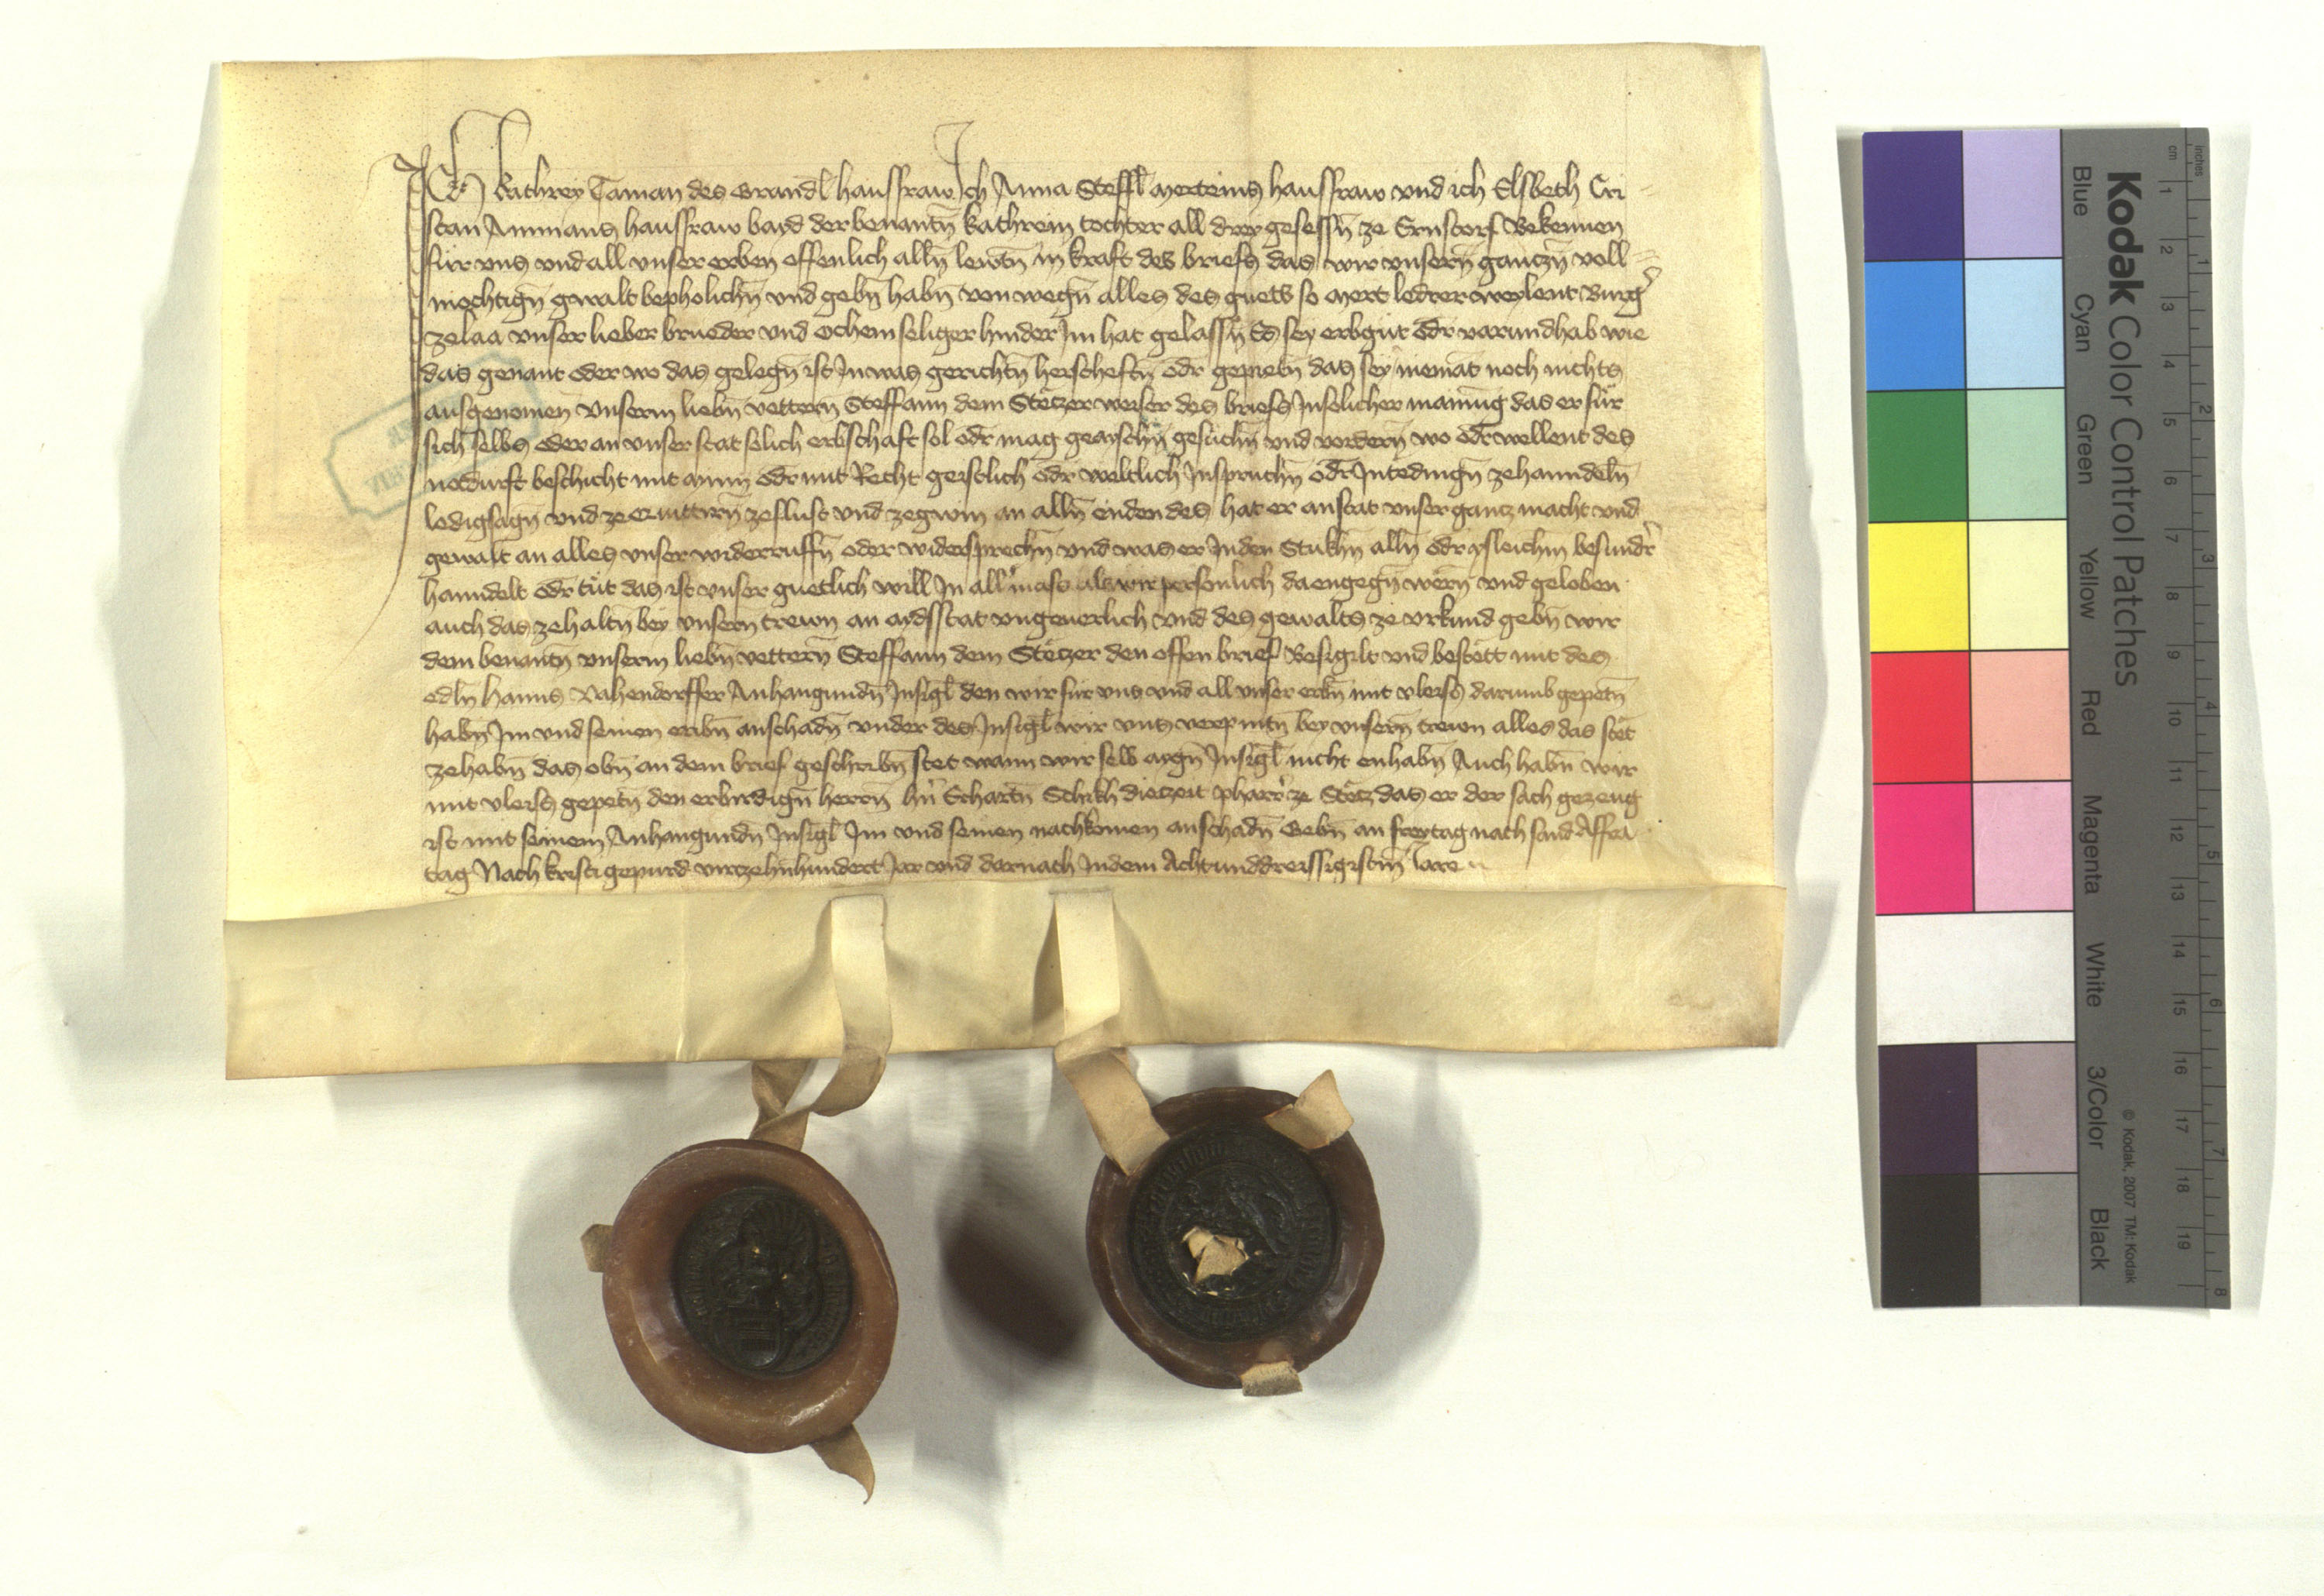 Ich Kathrey Taman des Grandl hausfraw Ich Anna Steffl Merteins hausfraw vnd ich Elsbeth Cri
stan Ammans hausfraw bayd der benantn̄ kathrein tochter all drey gesessn̄ ze Ernstorf Bekennen
für vns vnd all vnser erben offenlich alln̄ lewtn̄ in kraft des briefs das wir vnsern̄ gantzn̄ voll
mochtign̄ gwalt bepholichn̄ vnd gebn̄ habn̄ von wegn̄ alles des guets so Mert ledrer weylent Burgr̄
ze laa vnser lieber brueder vnd ochem seliger hinder Im hat gelassn̄ Es sey erbgut odr̄ varundhab wie
das genant oder wo das gelegn̄ ist In was gerichtn̄ herscheftn̄ odr̄ gepietn̄ das sey niemāt noch nichts
ausgenomen vnserm liebn̄ vettern̄ Steffann dem Stetzer weiser des briefs In solicher maynūg das er für
sich selbs oder an vnser stat solich erbschaft sol odr̄ mag gearschn̄ gesuchn̄ vnd vordern̄ wo odr̄ wellent des
notdurft beschicht mit mynn odr̄ mit Recht geistlich odr̄ weltlich In spruchn̄ odr̄ In tedingn̄ ze hanndeln̄
ledigsagn̄ vnd ze quittirn̄ ze flust vnd ze gwin an alln̄ enden des hat er anstat vnser gantz macht vnd
gewalt an alles vnser widerruffn̄ oder widersprechn̄ vnd was er In den Stukhn̄ alln̄ odr̄ ysleichm besundr̄
hanndelt odr̄ tut das ist vnser guetlich will In allr̄ mass als wir personlich da engegn̄ wern̄ vnd geloben
auch das ze haltn̄ bey vnsern̄ trewn an aydsstat vngeuerlich vnd des gewalts ze vrkund gebn̄ wir
dem benantn̄ vnserm liebn̄ vettern̄ Steffann dem Stetzer den offen brief Besigilt vnd bestett mit des
edln̄ Hanns Vahendorffer Anhangundn̄ Insigl den wir für vns vnd all vnser erbn̄ mit vleiss darumb gepetn̄
habn̄ Im vnd seinen eribn̄ anschadn̄ vnder des Insigl wir vns verpintn̄ bey vnsern̄ trewn alles das stet
ze habn̄ das obn̄ an dem brief geschribn̄ stet wann wir selb aygn̄ Insigl nicht enhabn̄ Auch habn̄ wir
mit vleiss gepetn̄ den erbirdign̄ herrn̄ hr̄n Schikh die tzeit pharrr̄ ze Stetz das er der sach gezeug
ist mit seinem Anhangundn̄ Insigl Im vnd seinen nachkomen anschadn̄ Gebn̄ an freytag nach sand Affra
tag Nach kristi gepurd virtzehnhundert Jar vnd darnach In dem Achtunddreissigistm̄ Jare
Kodak Color Control Patches
© Kodak, 2007 TM: Kodak
Blue Cyan Green Yellow Red Magenta White 3/Color Black
inches 1 2 3 4 5 6 7 8
cm 1 2 3 4 5 6 7 8 9 10 11 12 13 14 15 16 17 18 19